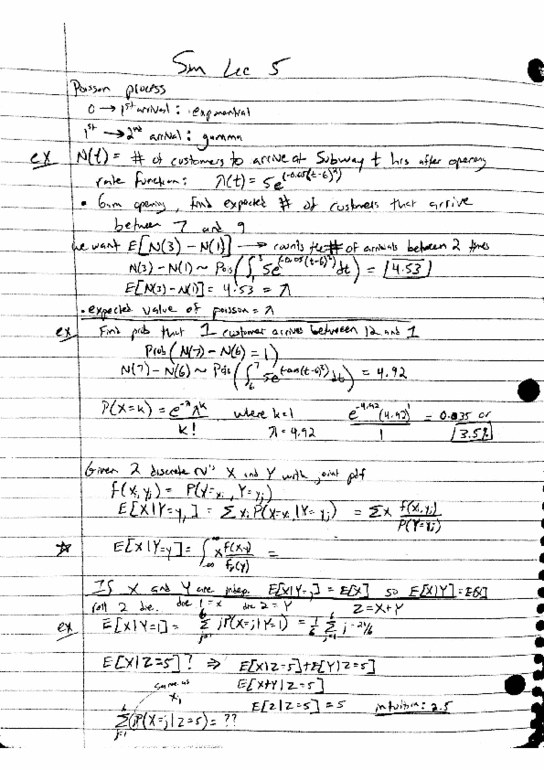 Sim Lec 5
Poisson process
0 → 1st arrival: exponential
1st → 2nd arrival: gamma
ex N(t) = # of customers to arrive at Subway t hrs after opening
rate function: λ(t) = 5e^(-0.05(t-6)²)
• 6am opening, find expected # of customers that arrive
between 7 and 9
we want E[N(3) - N(1)] → counts the # of arrivals between 2 times
N(3) - N(1) ~ Pois(∫₁³ 5e^(-0.05(t-6)²) dt) = 4.53
E[N(3) - N(1)] = 4.53 = λ
• expected value of poisson = λ
ex Find prob that 1 customer arrives between 12 and 1
Prob(N(7) - N(6) = 1)
N(7) - N(6) ~ Pois(∫₆⁷ 5e^(-0.05(t-6)²) dt) = 4.92
P(X=k) = e^-λ λ^k / k! where k=1 λ=4.92 e^-4.92 (4.92)^1 / 1 = 0.035 or 3.5%
Given 2 discrete rv's X and Y with joint pdf
f(xi, yj) = P(X=xi, Y=yj)
E[X|Y=yj] = Σ xi P(X=xi|Y=yj) = Σx f(xi,yj) / P(Y=yj)
☆ E[X|Y=y] = ∫ x f(x,y) / fy(y) =
If X and Y are indep. E[X|Y=j] = E[X] so E[X|Y] = E[X]
roll 2 die. die 1 = x die 2 = Y Z = X+Y
ex E[X|Y=1] = Σ jP(X=j|Y=1) = 1/6 Σ j = 21/6
E[X|Z=5]? ⇒ E[X|Z=5] + E[Y|Z=5]
E[X+Y|Z=5]
same as xi
E[Z|Z=5] = 5 intuition: 2.5
Σ jP(X=j|Z=5) = ??